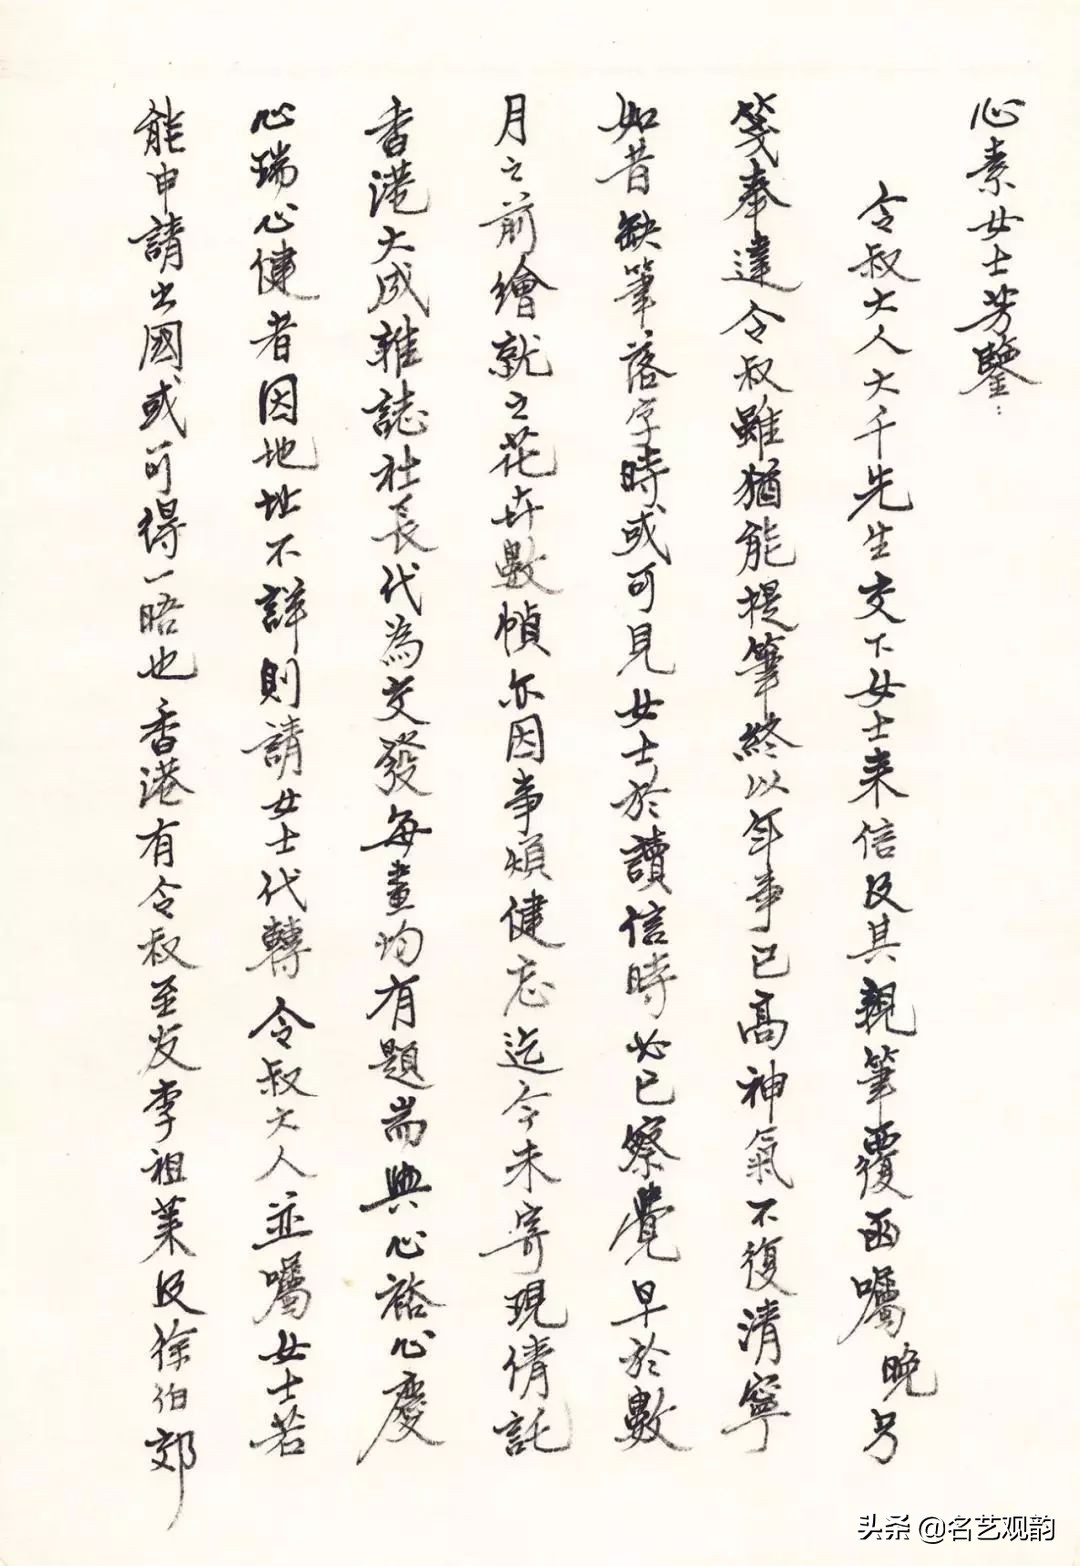 心素女士芳鑒：
令叔大人大千先生交下女士来信及其親筆覆函囑晚另
箋奉達令叔雖猶能提筆終以年事已高神氣不復清寧
如昔缺筆落字時或可見女士於讀信時必已察覺早於數
月之前繪就之花卉數幀亦因事煩健忘迄今未寄現倩託
香港大成雜誌社長代為交發每畫均有題耑與心裕心慶
心瑞心健者因地址不詳則請女士代轉令叔大人並囑女士若
能申請出國或可得一晤也香港有令叔至友李祖莱及徐伯郊
头条 @名艺观韵